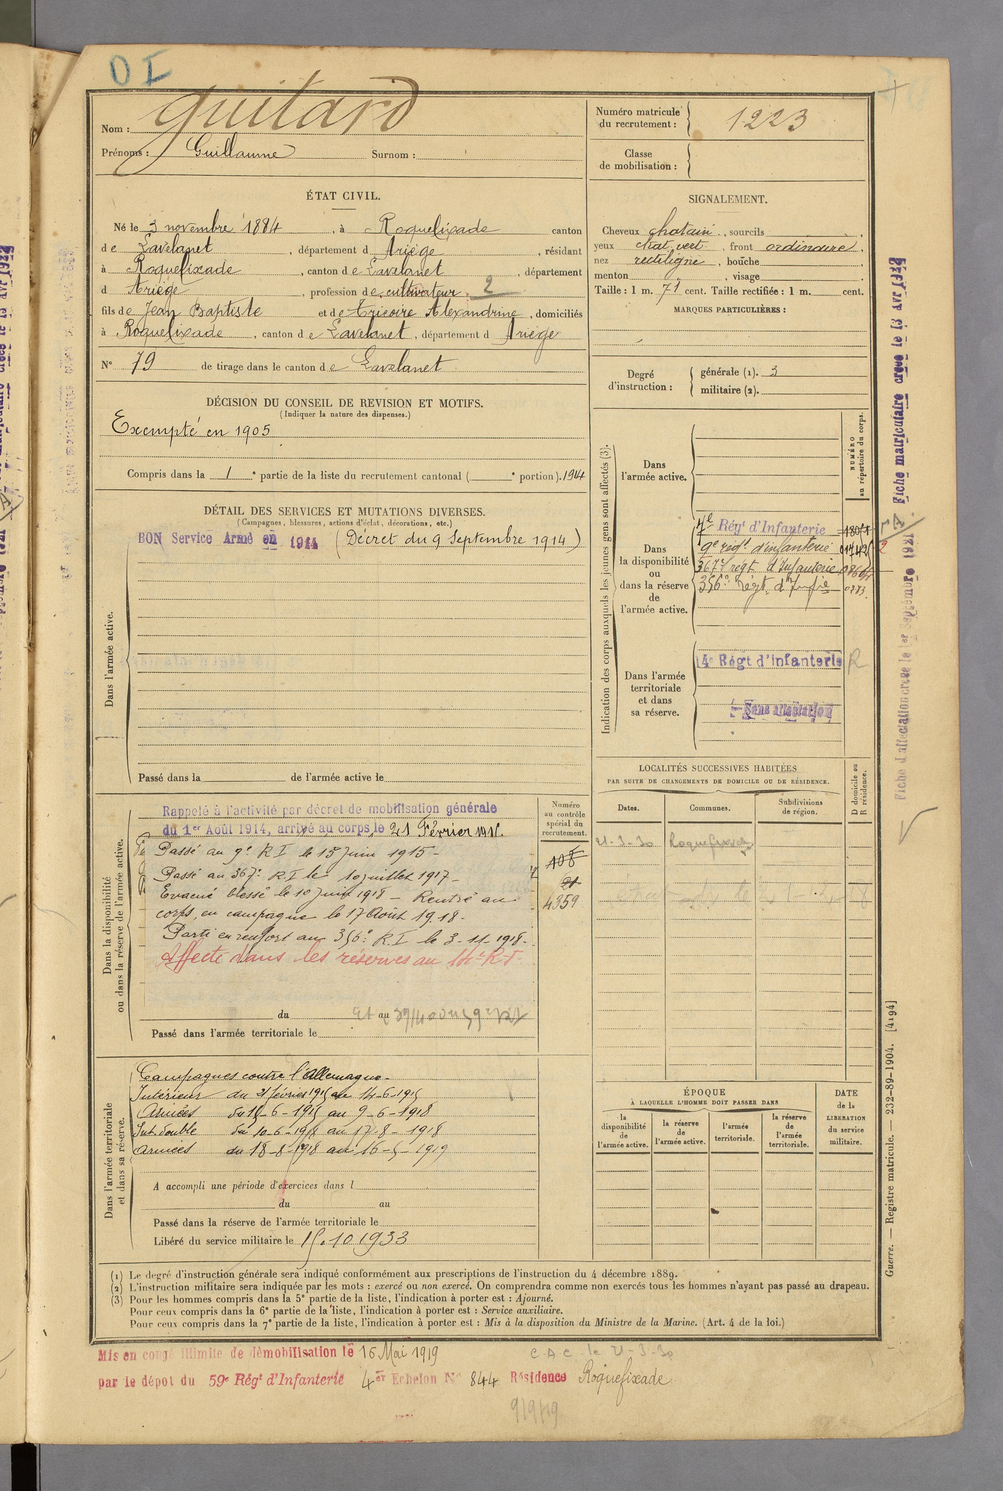 D I
Nom : Guitard
Prénoms : Guillaume Surnom :
Numéro matricule du recrutement : 1223
Classe de mobilisation :
ÉTAT CIVIL.
Né le 3 novembre 1884, à Roquefixade canton
de Lavelanet, département d Ariège, résidant
à Roquefixade, canton de Lavelanet, département
d Ariège, profession de cultivateur 2
fils de Jean Baptiste et de Tricoire Alexandrine, domiciliés
à Roquefixade, canton de Lavelanet, département d Ariège
N° 79 de tirage dans le canton de Lavelanet
DÉCISION DU CONSEIL DE REVISION ET MOTIFS.
(Indiquer la nature des dispenses.)
Exempté en 1905
Compris dans la 1e partie de la liste du recrutement cantonal ( e portion). 1914
DÉTAIL DES SERVICES ET MUTATIONS DIVERSES.
(Campagnes, blessures, actions d'éclat, décorations, etc.)
Dans l'armée active.
BON Service Armé en 1914 (Décret du 9 Septembre 1914)
Passé dans la de l'armée active le
Dans la disponibilité
ou dans la réserve de l'armée active.
Rappelé à l'activité par décret de mobilisation générale
du 1er Août 1914, arrivé au corps le 21 Février 1915.
Passé au 9e R I le 15 Juin 1915-
Passé au 367e R I le 10 juillet 1917-
Evacué blessé le 10 Juin 1918 - Rentré au
corps, en campagne le 17 Août 1918-
Parti en renfort au 356e R I le 3-11-1918-
Affecté dans les réserves au 14e R I
du au
Passé dans l'armée territoriale le
Numéro
au contrôle
spécial du
recrutement.
108
21
4359
Dans l'armée territoriale
et dans sa réserve.
Campagnes contre l'Allemagne-
Intérieur du 21 février 1915 au 14-6-1915
Armées du 15-6-1915 au 9-6-1918
Int. double du 10-6-1918 au 17-8-1918
Armées du 18-8-1918 au 16-5-1919
A accompli une période d'exercices dans l
du au
Passé dans la réserve de l'armée territoriale le
Libéré du service militaire le 15.10.1933
SIGNALEMENT.
Cheveux chatain, sourcils ,
yeux chat. vert, front ordinaire,
nez rectiligne, bouche ,
menton , visage .
Taille : 1 m. 71 cent. Taille rectifiée : 1 m. cent.
MARQUES PARTICULIÈRES :
Degré
d'instruction :
générale (1). 3
militaire (2).
Indication des corps auxquels les jeunes gens sont affectés (3).
NUMÉRO
au répertoire du corps.
Dans
l'armée active.
Dans
la disponibilité
ou
dans la réserve
de
l'armée active.
Régt d'Infanterie
9e régt d'infanterie
367e régt d'Infanterie
356e Régt d'Infie
Dans l'armée
territoriale
et dans
sa réserve.
4e Régt d'Infanterie R
Sans affectation
LOCALITÉS SUCCESSIVES HABITÉES
PAR SUITE DE CHANGEMENTS DE DOMICILE OU DE RÉSIDENCE.
Dates.
Communes.
Subdivisions
de région.
D domicile ou
R résidence.
21-3-30 Roquefixade
ÉPOQUE
À LAQUELLE L'HOMME DOIT PASSER DANS
la
disponibilité
de
l'armée active.
la réserve
de
l'armée active.
l'armée
territoriale.
la réserve
de
l'armée
territoriale.
DATE
de la
LIBÉRATION
du service
militaire.
(1) Le degré d'instruction générale sera indiqué conformément aux prescriptions de l'instruction du 4 décembre 1889.
(2) L'instruction militaire sera indiquée par les mots : exercé ou non exercé. On comprendra comme non exercés tous les hommes n'ayant pas passé au drapeau.
(3) Pour les hommes compris dans la 5e partie de la liste, l'indication à porter est : Ajourné.
Pour ceux compris dans la 6e partie de la liste, l'indication à porter est : Service auxiliaire.
Pour ceux compris dans la 7e partie de la liste, l'indication à porter est : Mis à la disposition du Ministre de la Marine. (Art. 4 de la loi.)
Mis en congé illimité de démobilisation le 16 Mai 1919
par le dépôt du 59e Régt d'Infanterie 4er Echelon N° 844 Résidence Roquefixade
C A C le 21-3-30
9/9/19
Guerre. — Registre matricule. — 232-89-1904. [4194]
Fiche d'affectation créée le 1er Septembre 1921
Fiche matriculaire créée le